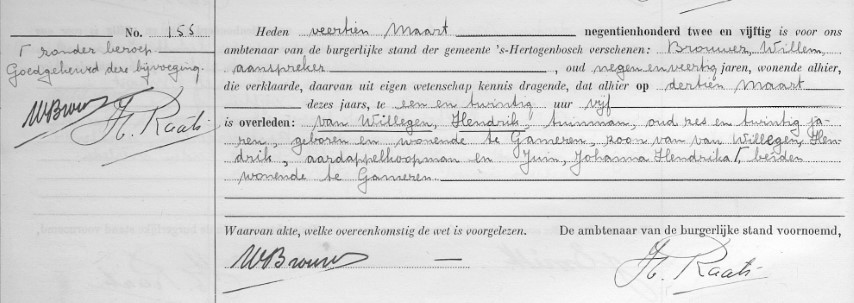 No. 155
Γ zonder beroep.
Goedgekeurd deze bijvoeging.
WBrouwer H. Raats
Heden veertien Maart negentienhonderd twee en vijftig is voor ons
ambtenaar van de burgerlijke stand der gemeente 's-Hertogenbosch verschenen: Brouwer, Willem,
aanspreker, oud negenenveertig jaren, wonende alhier,
die verklaarde, daarvan uit eigen wetenschap kennis dragende, dat alhier op dertien Maart
dezes jaars, te een en twintig uur vijf
is overleden: van Willegen, Hendrik, tuinman, oud zes en twintig ja-
ren, geboren en wonende te Gameren, zoon van van Willegen, Hen-
drik, aardappelkoopman en Juin, Johanna Hendrika Γ, beiden
wonende te Gameren.
Waarvan akte, welke overeenkomstig de wet is voorgelezen. De ambtenaar van de burgerlijke stand voornoemd,
WBrouwer H. Raats